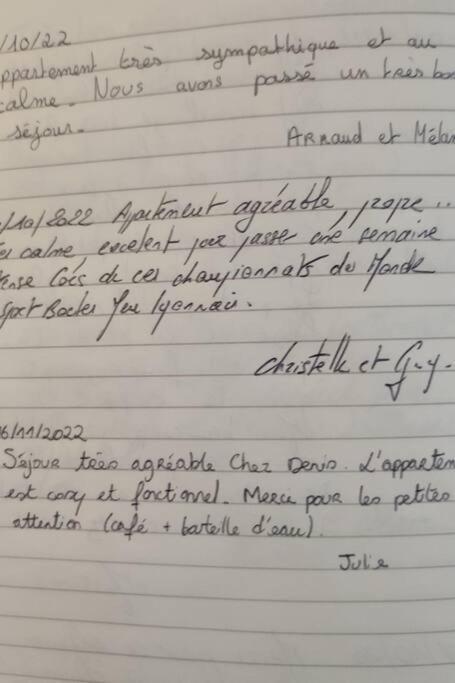 /10/22
ppartement très sympathique et au
calme. Nous avons passé un très bon
séjour.
Arnaud et Mélan
/10/2022 Appartement agréable, propre...
calme, excelent pour passer une semaine
ense lors de ces championnats du Monde
Sport Boules
Christelle et Guy.
6/11/2022
Séjour très agréable Chez Denis. L'appartem
est cosy et fonctionnel. Merci pour les petites
attention (café + bouteille d'eau).
Julie